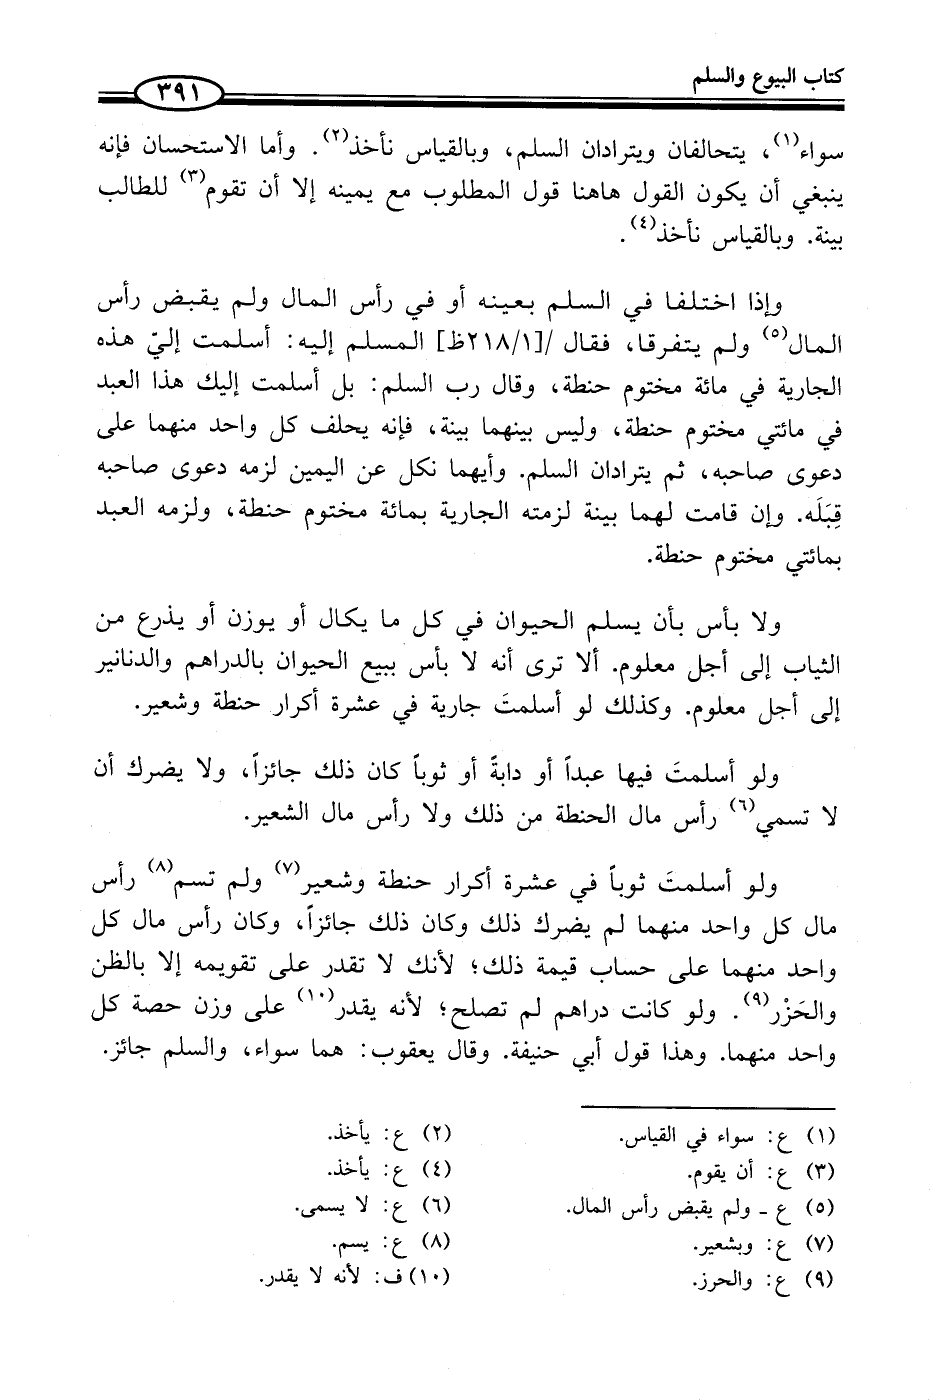 كتاب البيوع والسلم
٣٩١
سواء(١)، يتحالفان ويترادان السلم، وبالقياس نأخذ(٢). وأما الاستحسان فإنه
ينبغي أن يكون القول هاهنا قول المطلوب مع يمينه إلا أن تقوم(٣) للطالب
بينة. وبالقياس نأخذ(٤).
وإذا اختلفا في السلم بعينه أو في رأس المال ولم يقبض رأس
المال(٥) ولم يتفرقا، فقال /[٢١٨/١ظ] المسلم إليه: أسلمت إليّ هذه
الجارية في مائة مختوم حنطة، وقال رب السلم: بل أسلمت إليك هذا العبد
في مائتي مختوم حنطة، وليس بينهما بينة، فإنه يحلف كل واحد منهما على
دعوى صاحبه، ثم يترادان السلم. وأيهما نكل عن اليمين لزمه دعوى صاحبه
قِبَلَه. وإن قامت لهما بينة لزمته الجارية بمائة مختوم حنطة، ولزمه العبد
بمائتي مختوم حنطة.
ولا بأس بأن يسلم الحيوان في كل ما يكال أو يوزن أو يذرع من
الثياب إلى أجل معلوم. ألا ترى أنه لا بأس ببيع الحيوان بالدراهم والدنانير
إلى أجل معلوم. وكذلك لو أسلمتَ جارية في عشرة أكرار حنطة وشعير.
ولو أسلمتَ فيها عبداً أو دابةً أو ثوباً كان ذلك جائزاً، ولا يضرك أن
لا تسمي(٦) رأس مال الحنطة من ذلك ولا رأس مال الشعير.
ولو أسلمتَ ثوباً في عشرة أكرار حنطة وشعير(٧) ولم تسم(٨) رأس
مال كل واحد منهما لم يضرك ذلك وكان ذلك جائزاً، وكان رأس مال كل
واحد منهما على حساب قيمة ذلك؛ لأنك لا تقدر على تقويمه إلا بالظن
والحَزْر(٩). ولو كانت دراهم لم تصلح؛ لأنه يقدر(١٠) على وزن حصة كل
واحد منهما. وهذا قول أبي حنيفة. وقال يعقوب: هما سواء، والسلم جائز.
(١) ع: سواء في القياس.
(٢) ع: يأخذ.
(٣) ع: أن يقوم.
(٤) ع: يأخذ.
(٥) ع ـ ولم يقبض رأس المال.
(٦) ع: لا يسمى.
(٧) ع: وبشعير.
(٨) ع: يسم.
(٩) ع: والحرز.
(١٠) ف: لأنه لا يقدر.